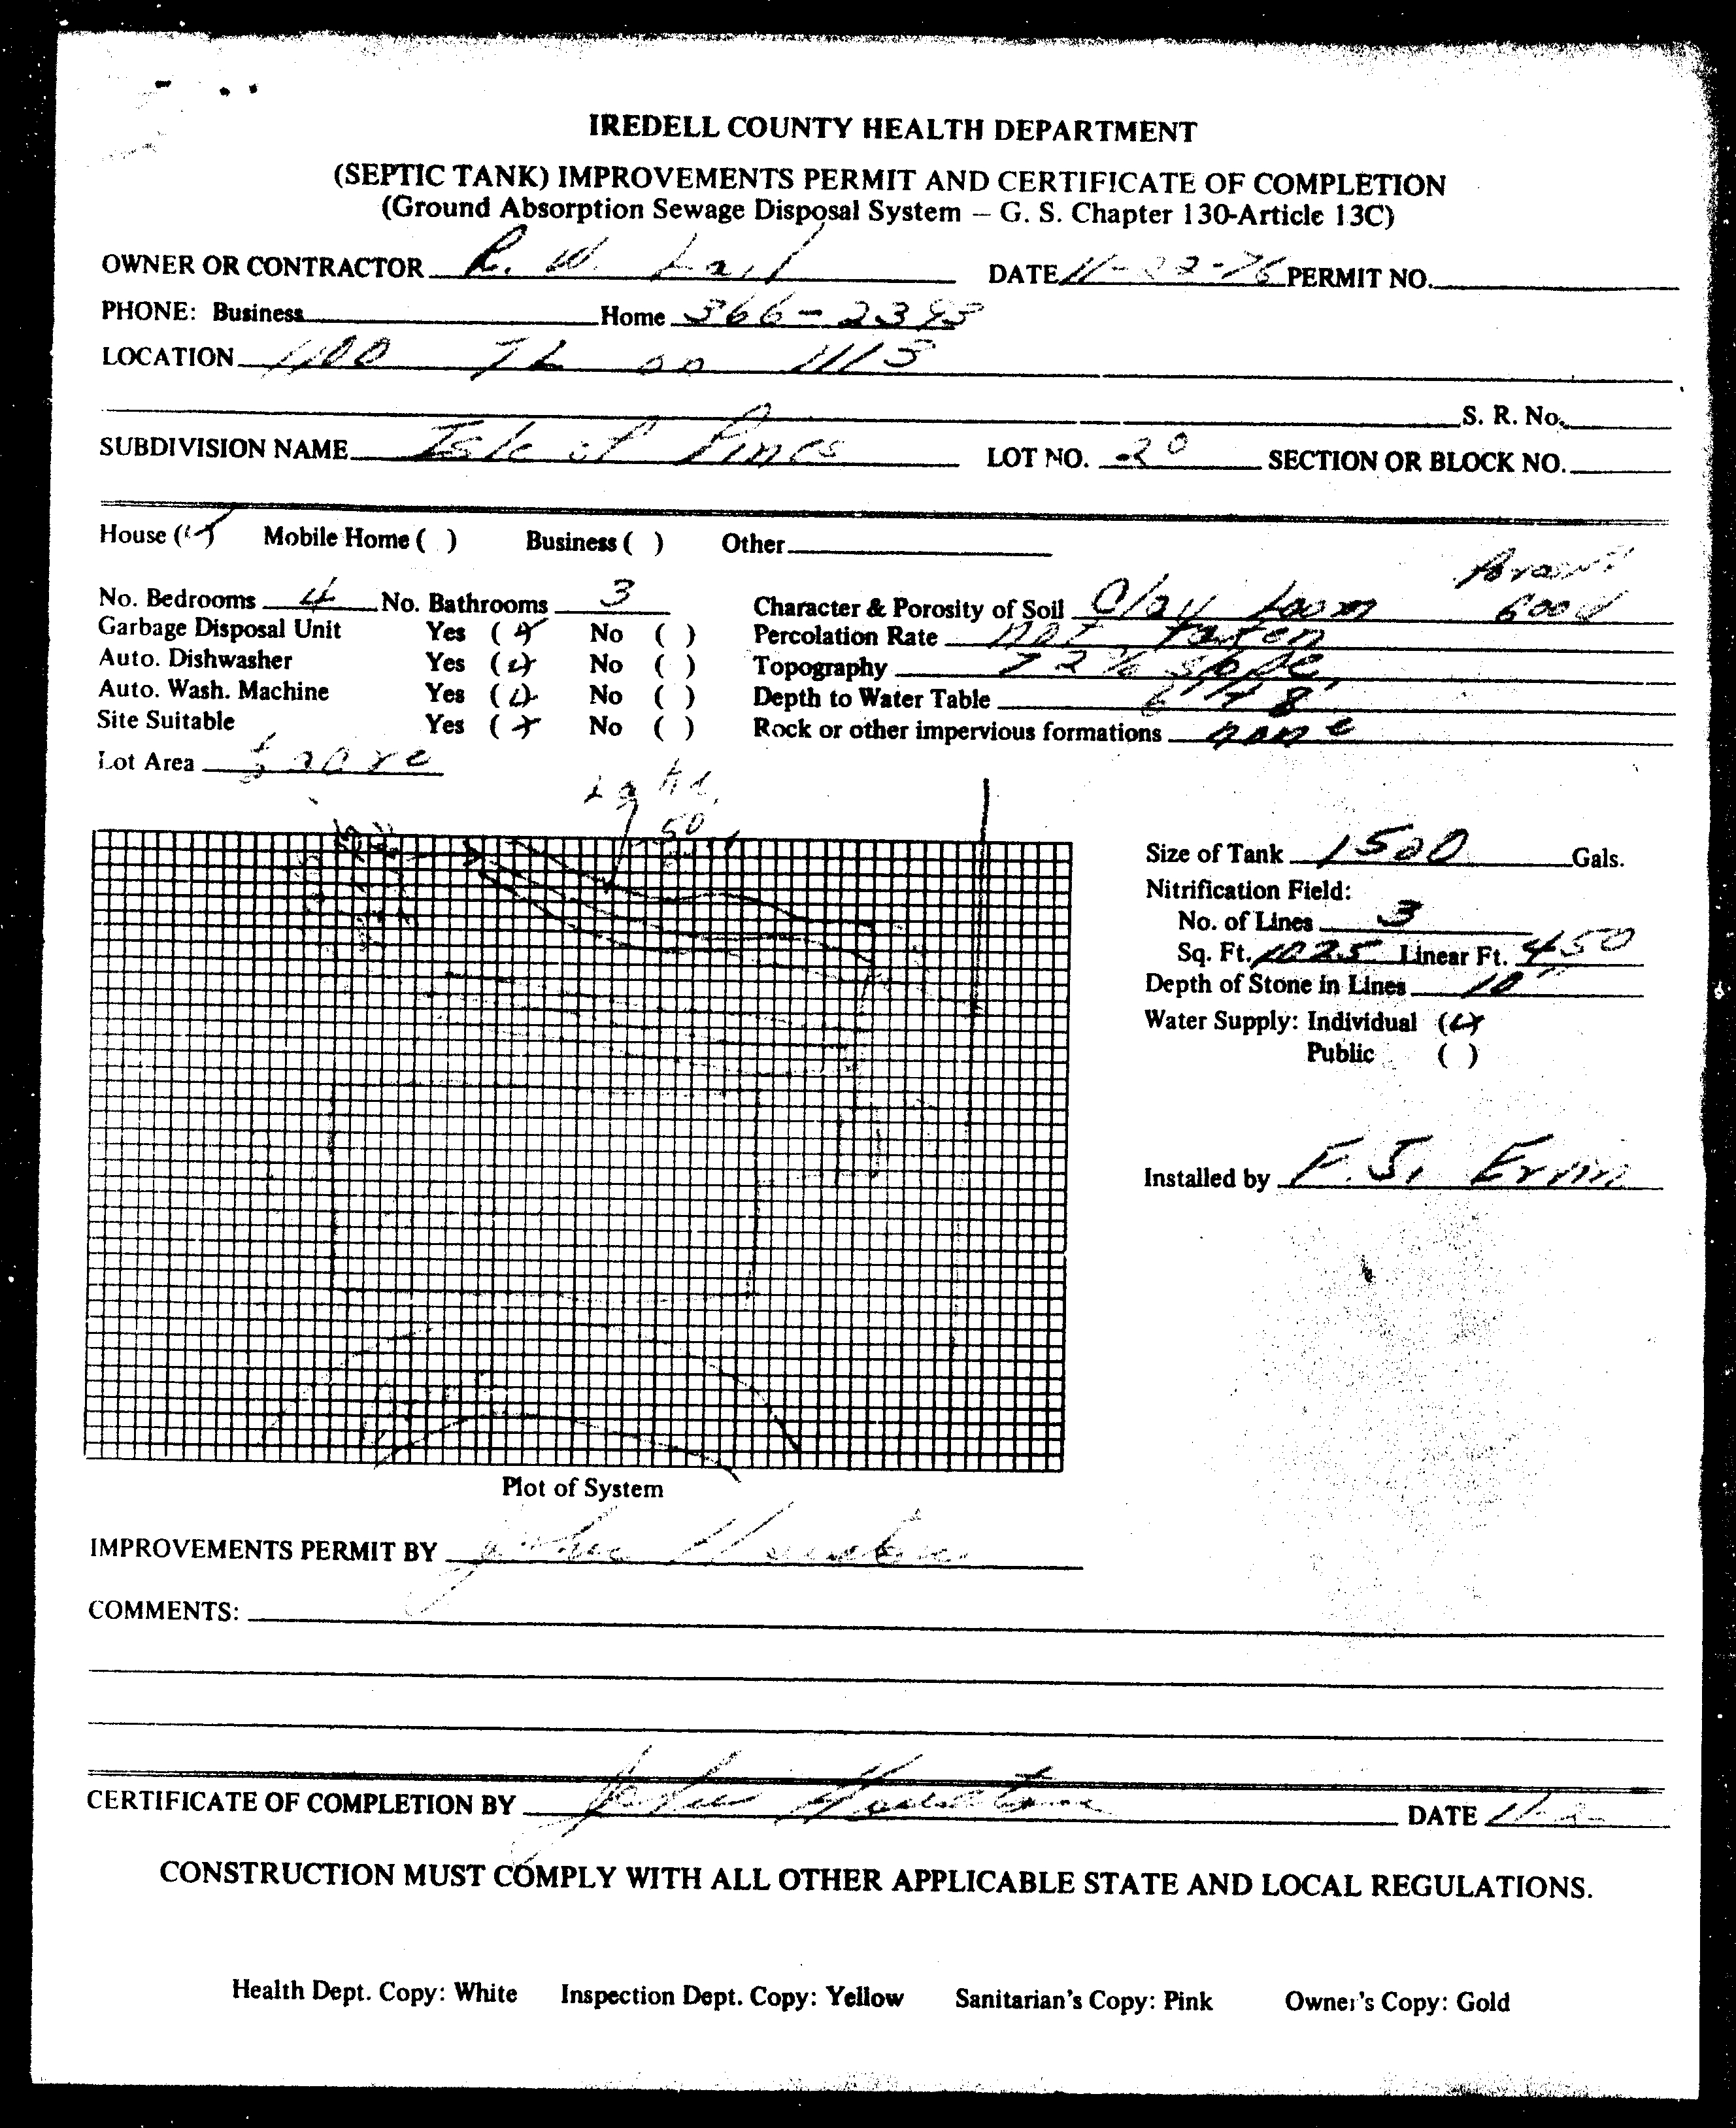 IREDELL COUNTY HEALTH DEPARTMENT
(SEPTIC TANK) IMPROVEMENTS PERMIT AND CERTIFICATE OF COMPLETION
(Ground Absorption Sewage Disposal System – G. S. Chapter 130-Article 13C)
OWNER OR CONTRACTOR R. W. DATE 11-22-76 PERMIT NO.
PHONE: Business Home 366-2393
LOCATION 1100 TL on 1113
S. R. No.
SUBDIVISION NAME Isle of Pines LOT NO. 20 SECTION OR BLOCK NO.
House (✓) Mobile Home ( ) Business ( ) Other
No. Bedrooms 4 No. Bathrooms 3 Character & Porosity of Soil Clay Loam Good
Garbage Disposal Unit Yes (✓) No ( ) Percolation Rate not taken
Auto. Dishwasher Yes (✓) No ( ) Topography 72% slope
Auto. Wash. Machine Yes (✓) No ( ) Depth to Water Table
Site Suitable Yes (✓) No ( ) Rock or other impervious formations none
Lot Area acre
50
Size of Tank 1500 Gals.
Nitrification Field:
No. of Lines 3
Sq. Ft. 1025 Linear Ft. 450
Depth of Stone in Lines 10"
Water Supply: Individual (✓)
Public ( )
Installed by F. S. Ervin
Plot of System
IMPROVEMENTS PERMIT BY
COMMENTS:
CERTIFICATE OF COMPLETION BY DATE
CONSTRUCTION MUST COMPLY WITH ALL OTHER APPLICABLE STATE AND LOCAL REGULATIONS.
Health Dept. Copy: White Inspection Dept. Copy: Yellow Sanitarian's Copy: Pink Owner's Copy: Gold